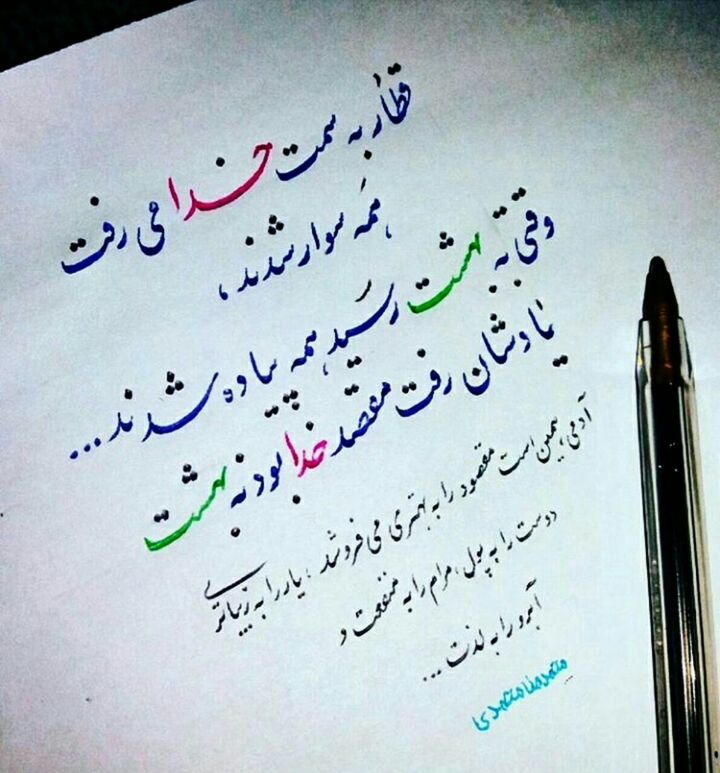 قطار به سمت خدا می رفت
همه سوار شدند،
وقتی به بهشت رسید، همه پیاده شدند...
یادشان رفت مقصد خدا بود نه بهشت
آدمی، همین است مقصود را به بهتری می فروشد، یار را به زیباتری
دوست را به پول، مرام را به منفعت و
آبرو را به لذت...